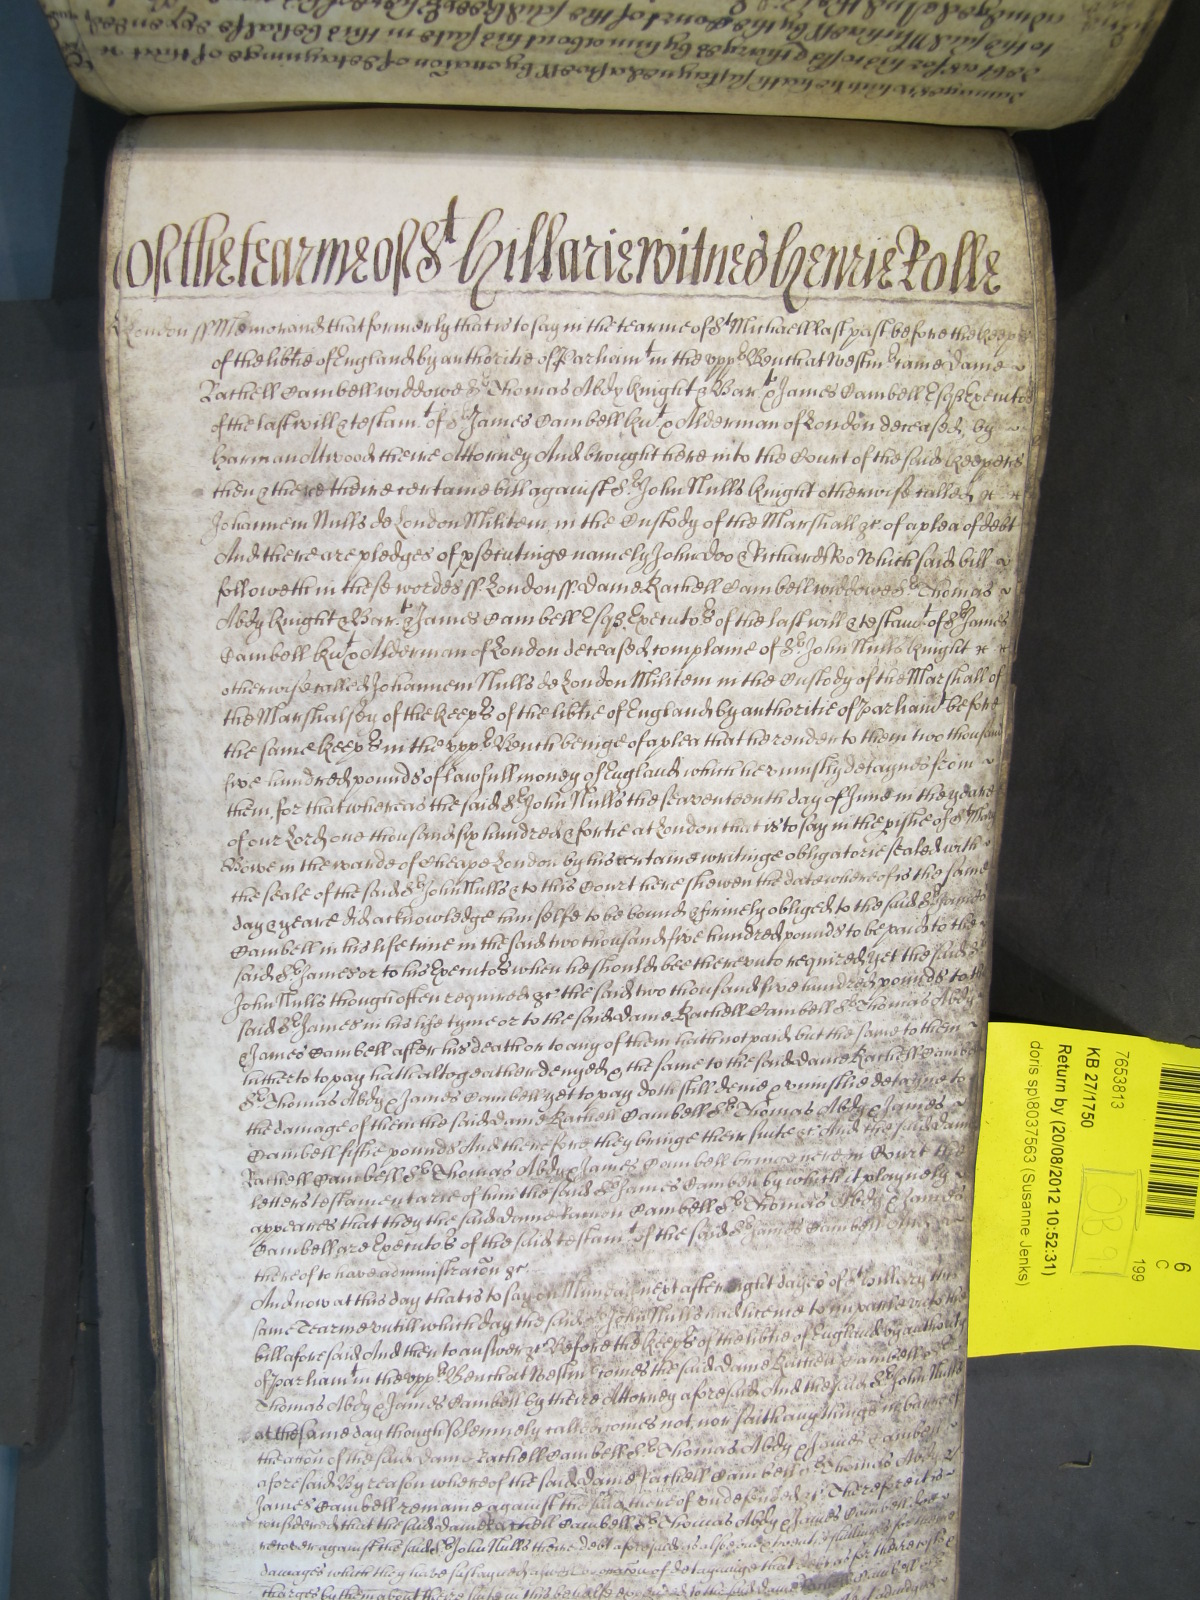 Of the tearme of St Hillarie witnes Henrie Rolle
London ss Memorand that formerly that is to say in the tearme of St Michaell last past before the keeps
of the libtie of England by authoritie of Parliamt in the vpp Bench at Westm came dame
Rachell Cambell widdowe Sr Thomas Abdy knight & Bart & James Cambell Esqr Executors
of the last will & testamt of Sr James Cambell knt & Alderman of London deceased, by
Harman Atwood theire Attorney And brought here into the Court of the said keepers
then & there theire certaine bill against Sr John Nulls knight otherwise called
Johannem Nulls de London Militem in the Custody of the Marshall &c. of a plea of debt
And there are pledges of psecutinge namely John doo & Richard Roo Which said bill
followeth in these wordes ss. London ss. dame Rachell Cambell widdowe Sr Thomas
Abdy knight & Bart & James Cambell Esqr Executors of the last will & testamt of Sr James
Cambell knt & Alderman of London deceased complaine of Sr John Nulls knight
otherwise called Johannem Nulls de London Militem in the Custody of the Marshall of
the Marshalsey of the keeps of the libtie of England by authoritie of parliamt before
the same keeps in the vpp Bench beinge of a plea that he render to them two thousand
five hundred pounds of lawfull money of England which he viniustly detaynes from
them for that whereas the said Sr John Nulls the seaventeenth day of June in the yeare
of our Lord one thousand six hundred & fortie at London that is to say in the pishe of St Mary
Bowe in the warde of Cheape London by his certaine writinge obligatorie sealed with
the seale of the said Sr John Nulls & to this Court here shewen the date whereof is the same
day & yeare did acknowledge himselfe to be bound & firmely obliged to the said Sr James
Cambell in his life time in the said two thousand five hundred pounds to be paid to the
said Sr James or to his Executors when he should bee therevnto required yet the said Sr
John Nulls though often required &c the said two thousand five hundred pounds to the
said Sr James in his life tyme or to the said dame Rachell Cambell Sr Thomas Abdy
& James Cambell after his death or to any of them hath not paid but the same to them
hitherto to pay hath altogeather denyed & the same to the said dame Rachell Cambell
Sr Thomas Abdy & James Cambell yet to pay doth still denie & viniustlie detaine to
the damage of them the said dame Rachell Cambell Sr Thomas Abdy & James
Cambell fiftie pounds And therefore they bringe their suite &c And the said dame
Rachell Cambell Sr Thomas Abdy & James Cambell bringe here in Court the
letters testamentarie of him the said Sr James Cambell by which it playnely
appeares that they the said dame Rachell Cambell Sr Thomas Abdy & James
Cambell are Executors of the said testamt of the said Sr James Cambell And
thereof to have administracon &c
And now at this day that is to say on Munday next after eight dayes of St Hillary this
same Tearme vntill which day the said Sr John Nulls had licence to imparle to the
bill aforesaid And then to answer &c Before the keeps of the libtie of England by authority
of parliamt in the vpp Bench at Westm comes the said dame Rachell Cambell Sr
Thomas Abdy & James Cambell by theire Attorney aforesaid And the said Sr John Nulls
at the same day though solemnely called comes not, nor saith any thinge in barr of
the action of the said dame Rachell Cambell Sr Thomas Abdy & James Cambell
aforesaid By reason whereof the said dame Rachell Cambell Sr Thomas Abdy &
James Cambell remaine against the said Sr thereof vndefended &c Therefore it is
considered that the said dame Rachell Cambell Sr Thomas Abdy & James Cambell
recover against the said Sr John Nulls theire debt aforesaid as also twenty shillings for theire
damages which they have sustayned by occasion of detayninge that debt as for theire costs
charges by them about theire suite in this behalfe
7653813
KB 27/1750
Return by (20/08/2012 10:52:31)
doris sp\8037563 (Susanne Jenks)
6
C
199